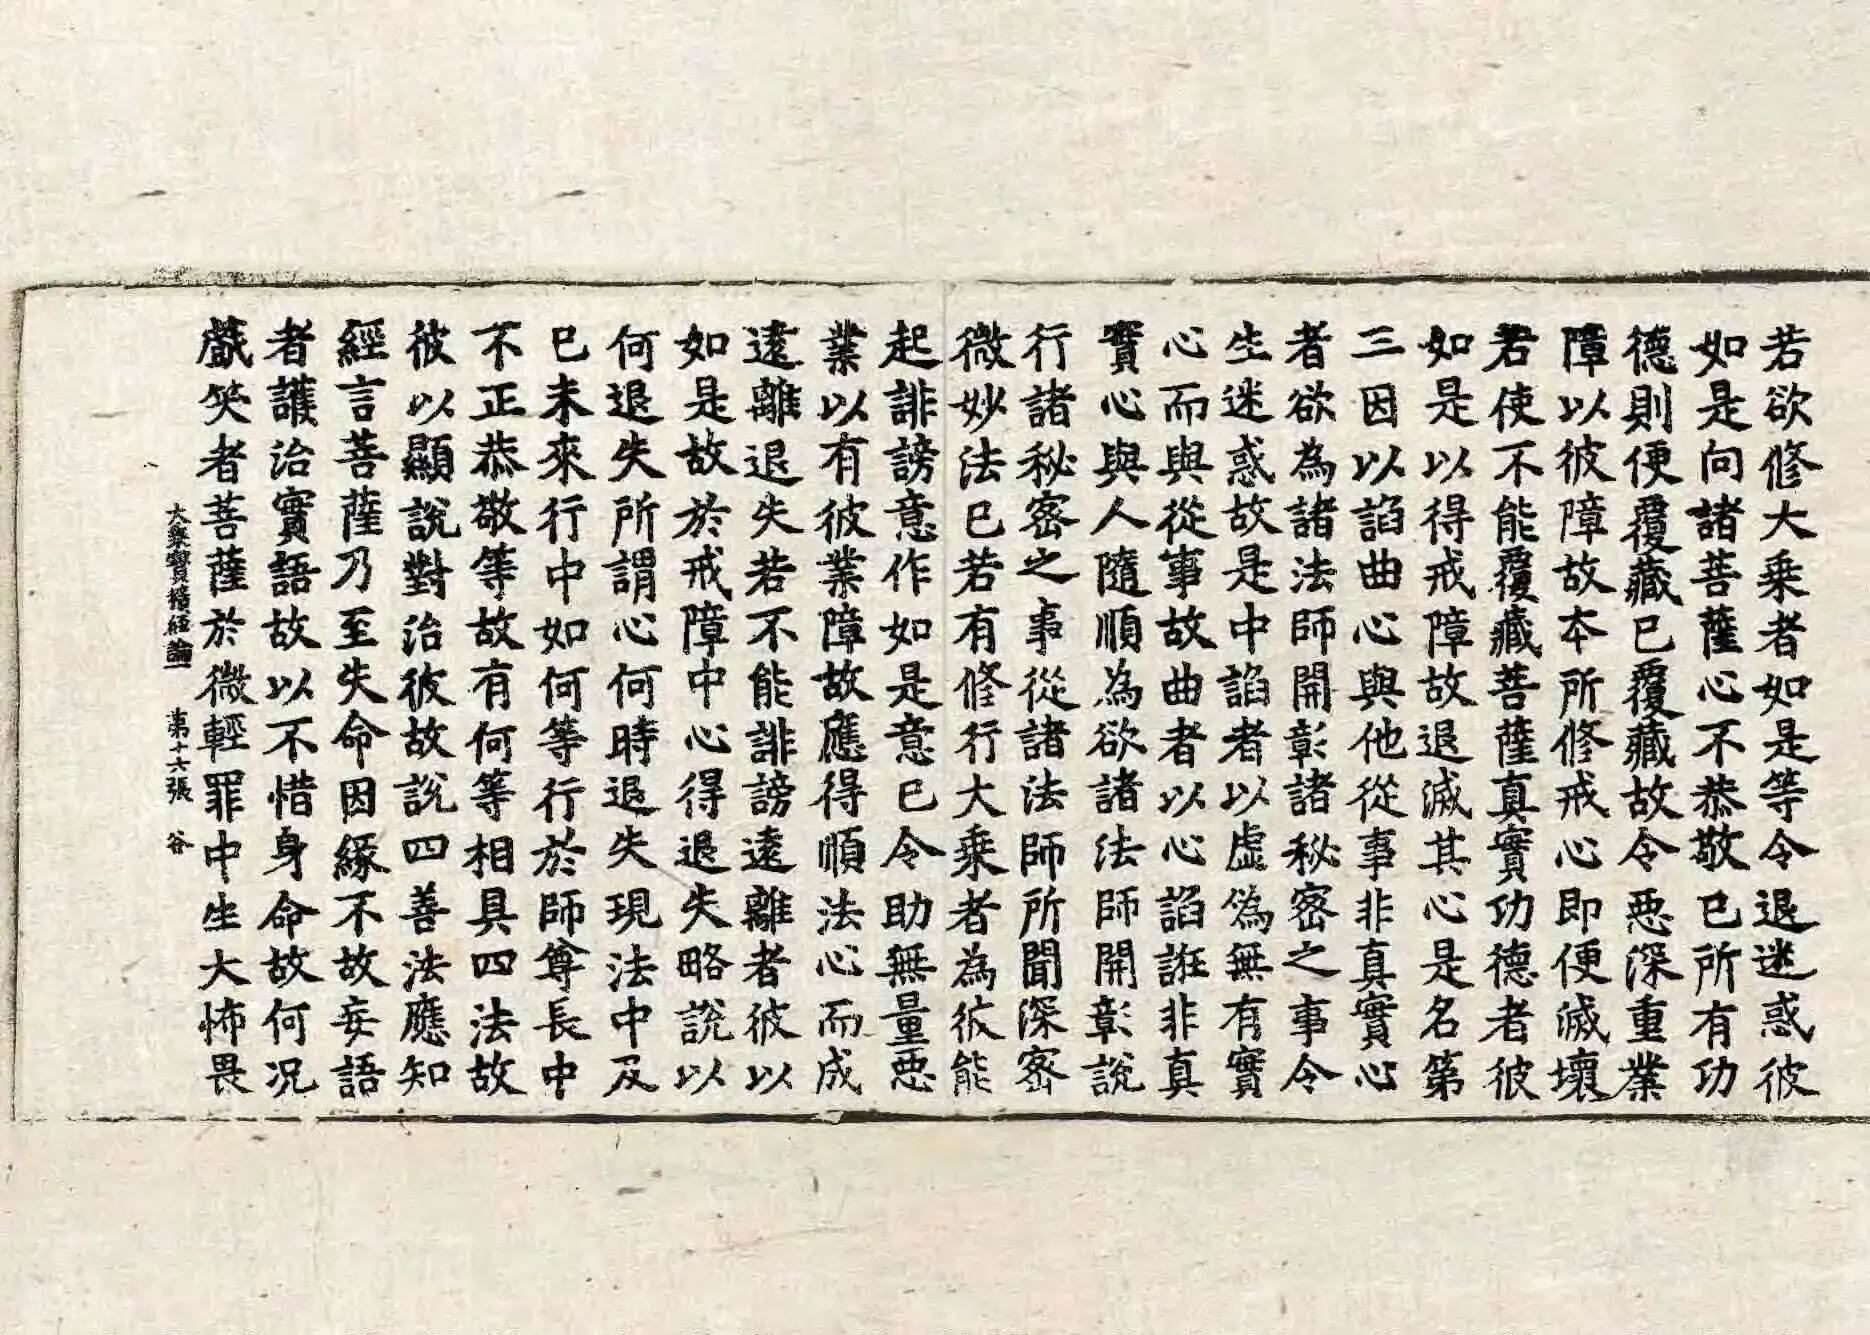 若欲修大乘者如是等令退迷惑彼
如是向諸菩薩心不恭敬已所有功
德則便覆藏已覆藏故令惡深重業
障以彼障故本所修戒心即便滅壞
若使不能覆藏菩薩真實功德者彼
如是以得戒障故退滅其心是名第
三因以諂曲心與他從事非真實心
者欲為諸法師開彰諸秘密之事令
生迷惑故是中諂者以虛偽無有實
心而與從事故曲者以心諂誑非真
實心與人隨順為欲諸法師開彰說
行諸秘密之事從諸法師所聞深密
微妙法已若有修行大乘者為彼能
起誹謗意作如是意已令助無量惡
業以有彼業障故應得順法心而成
遠離退失若不能誹謗遠離者彼以
如是故於戒障中心得退失略說以
何退失所謂心何時退失現法中及
已未來行中如何等行於師尊長中
不正恭敬等故有何等相具四法故
彼以顯說對治彼故說四善法應知
經言菩薩乃至失命因緣不故妄語
者護治實語故以不惜身命故何況
戲笑者菩薩於微輕罪中生大怖畏
大乘寶積經論一　第十六張　谷